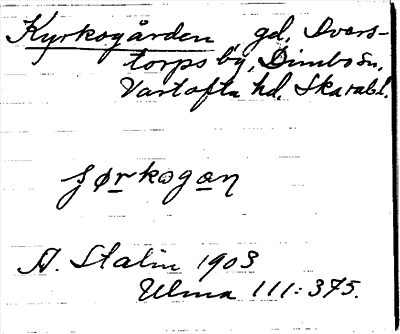 Kyrkogården gd, Dvers-
torps by, Dimbo sn,
Vartofta hd. Skarabl.
ɟørkogan
A. Stalin 1903
Ulma 111:375.